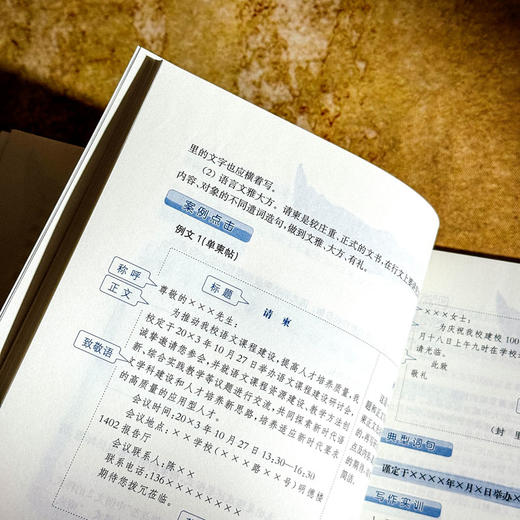 里的文字也应横着写。
（2）语言文雅大方。请柬是较庄重、正式的文书，在行文上要
内容、对象的不同遣词造句，做到文雅、大方、有礼。
案例点击
例文1（单柬帖）
称呼
标题
请 柬
正文
尊敬的×××先生：
为推动我校语文课程建设，提高人才培养质量，我
校定于20×3年10月27日举办语文课程建设研讨会，
致敬语
诚挚邀请您参会，并就语文课程资源建设、教学方法创
新、综合实践教学等议题进行交流，共同探索新时代语
文学科建设和人才培养新思路，培养适应新时代要求
的高质量的应用型人才。
会议时间：20×3年10月27日13:30—16:30
会议地点：××学校（×××路××号）明德楼
1402报告厅
会议联系人：陈××
联系电话：136××××××××
期待您拨冗莅临。
×××女士：
为庆祝我校建校100
月十八日上午九时在学校
请光临。
此致
敬礼
（封 里
典型词句
谨定于××××年×月×日举办
写作实训